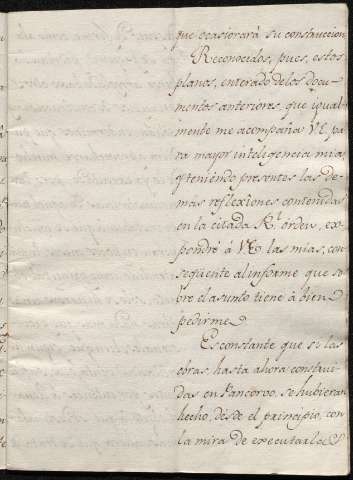 que ocasionará su construccion
Reconocidos, pues, estos
planos, enterado de los docu-
mentos anteriores, que igual-
mente me acompaña V.E. pa-
ra mayor inteligencia mia,
y teniendo presentes las de-
mas reflexîones contenidas
en la citada Rl. órden, ex-
pondré á V.E. las mias, con-
seqüente al informe que so-
bre el asunto tiene á bien
pedirme.
Es constante que si las
obras hasta ahora construi-
das en Pancorvo, se hubieran
hecho, desde el principio, con
la mira de executarlas